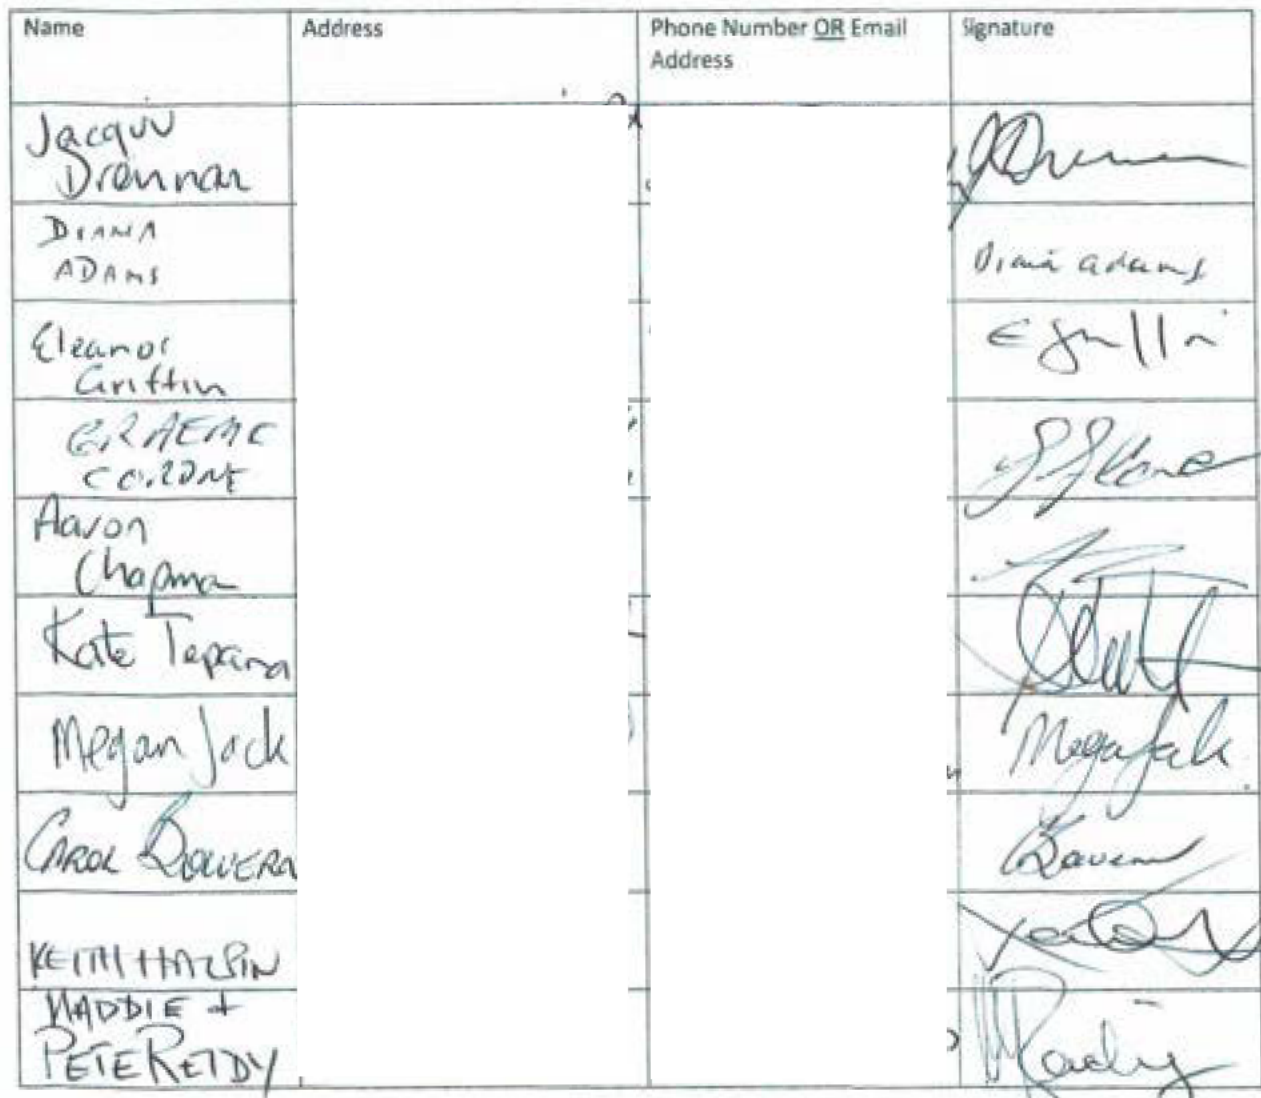 Name Address Phone Number OR Email Signature
Address
Jacqui
Drennan
DIANA
ADAMS Diana adams
Eleanor
Griffin
GRAEME
Aaron
Chapman
Kate Tepania
Megan Jack Megan Jack
CAROL BOWERN Bowern
KEITH HALPIN
MADDIE +
PETE REIDY